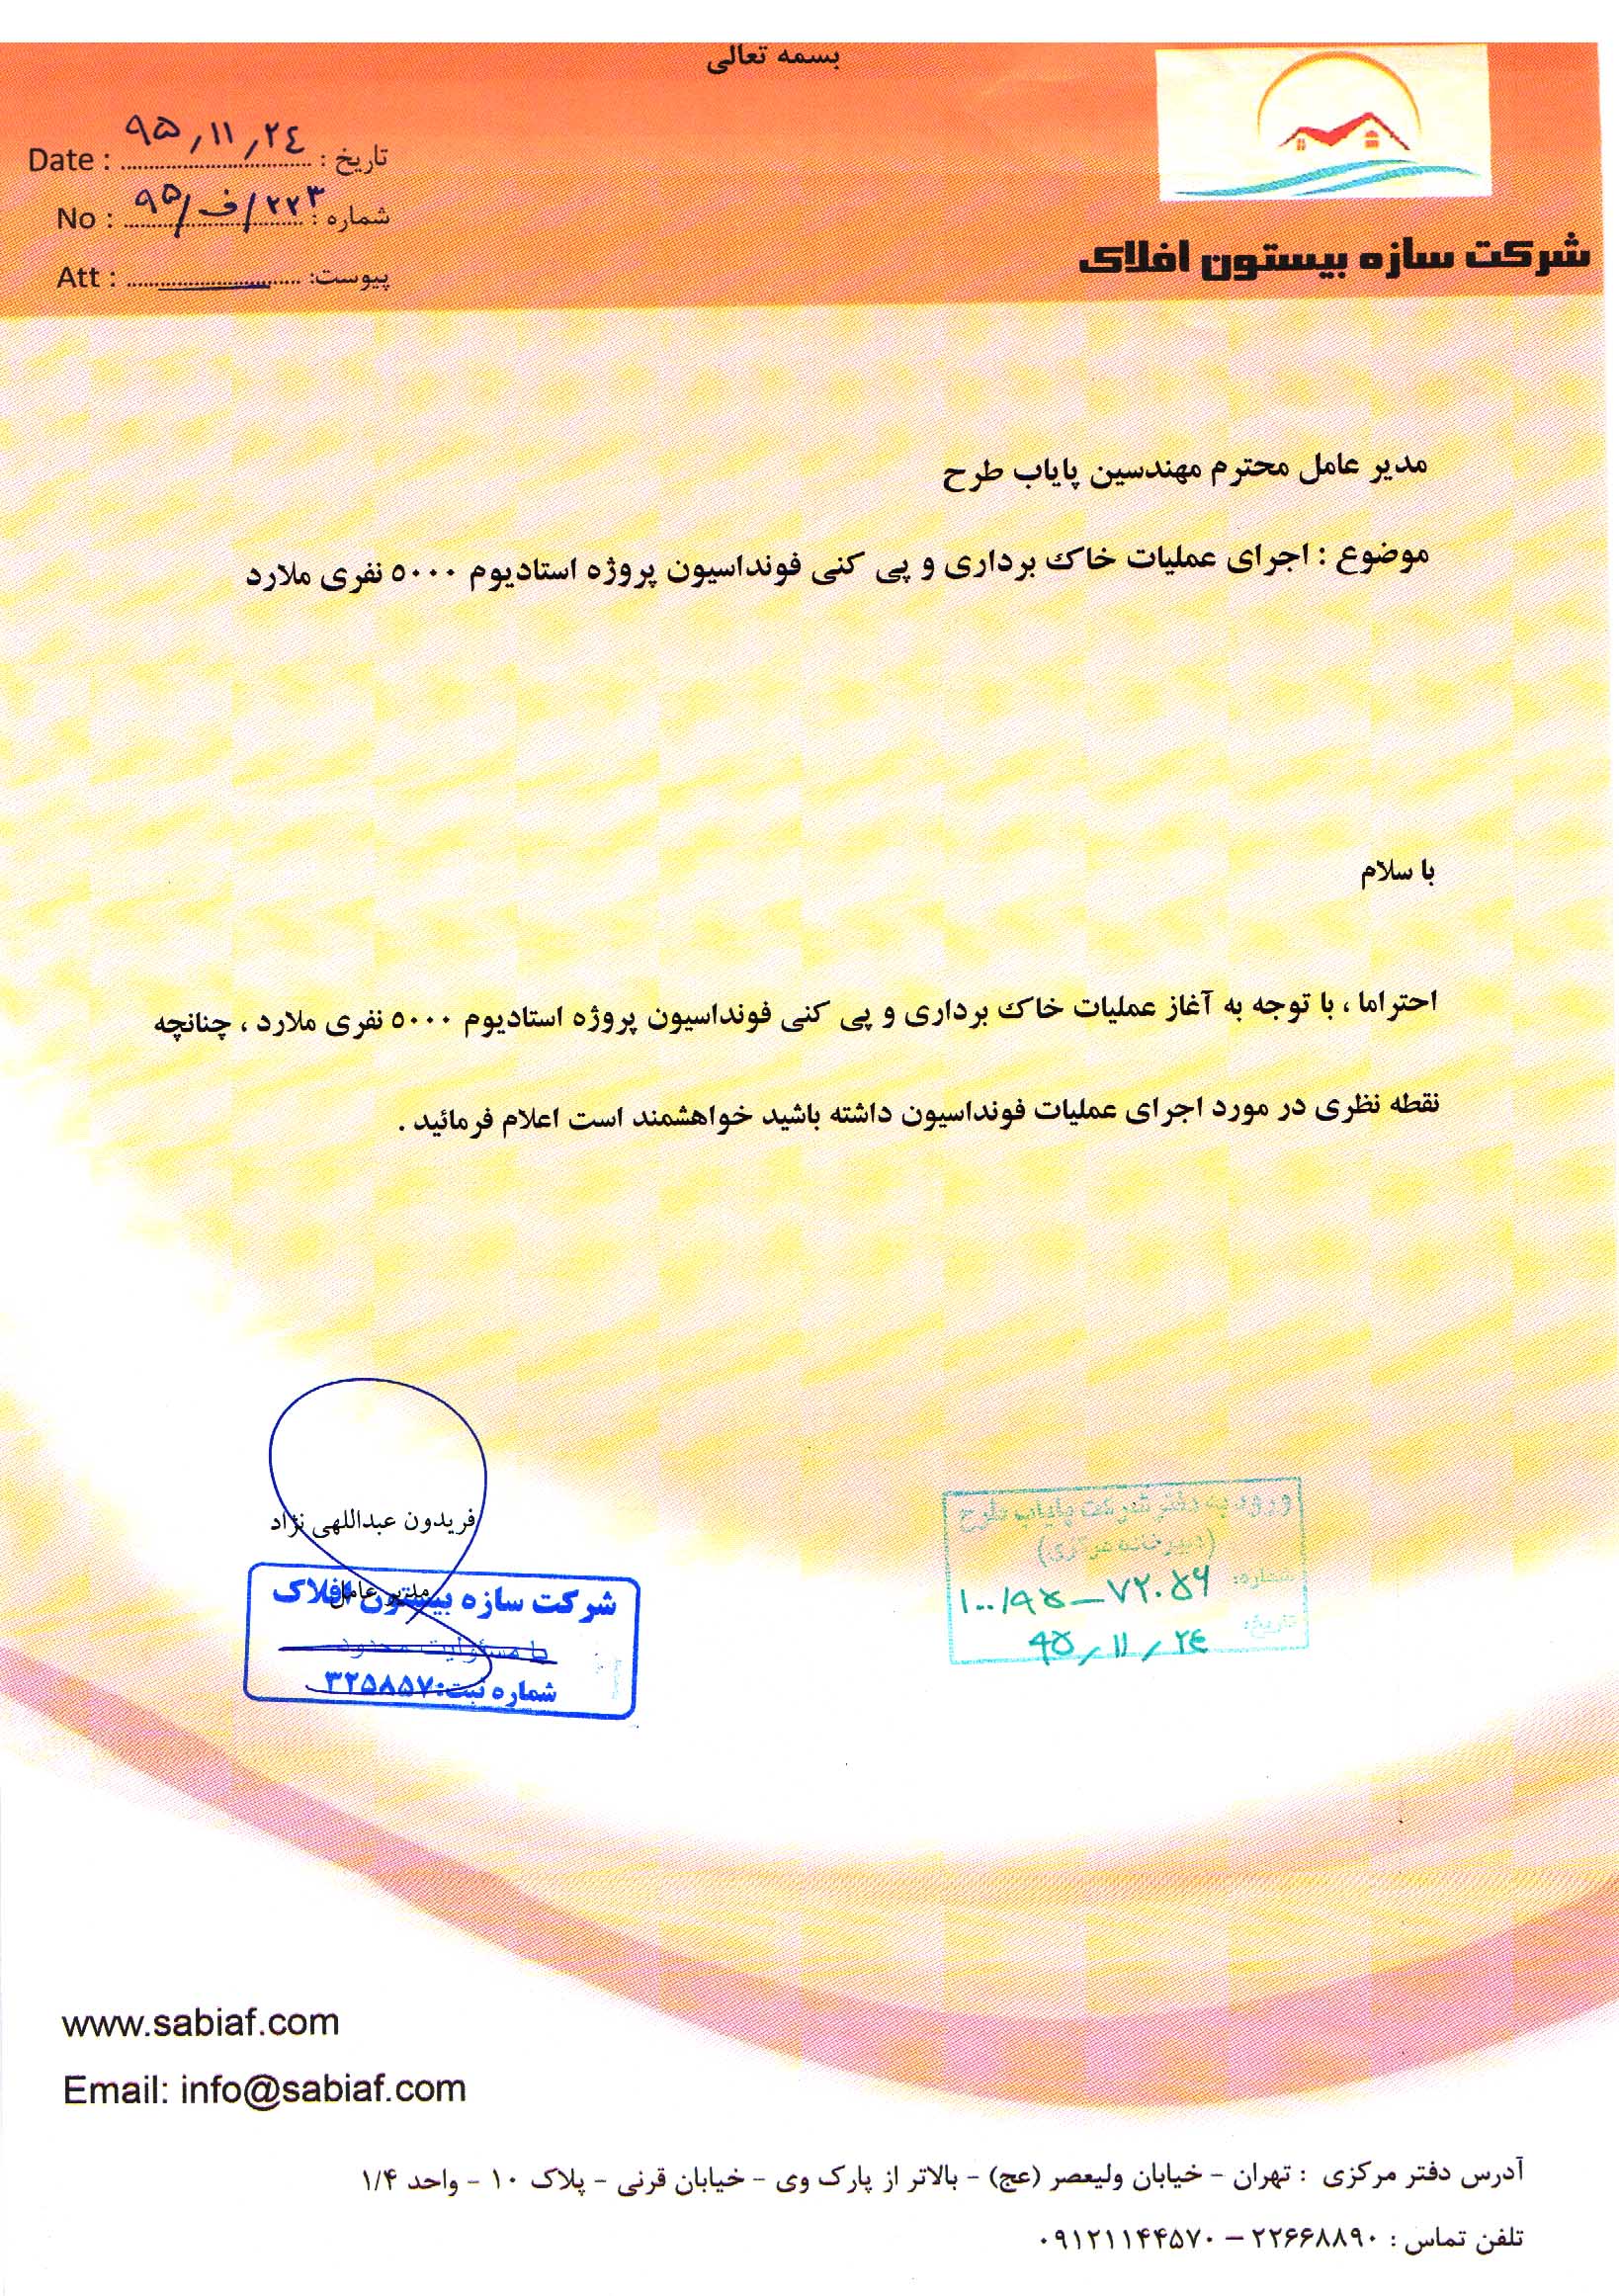 بسمه تعالی
تاریخ : ۹۵/۱۱/۲٤ Date :
شماره : ۲۲۳/ف/۹۵ No :
پیوست: Att :
شرکت سازه بیستون افلاک
مدیر عامل محترم مهندسین پایاب طرح
موضوع : اجرای عملیات خاک برداری و پی کنی فونداسیون پروژه استادیوم ۵۰۰۰ نفری ملارد
با سلام
احتراما ، با توجه به آغاز عملیات خاک برداری و پی کنی فونداسیون پروژه استادیوم ۵۰۰۰ نفری ملارد ، چنانچه
نقطه نظری در مورد اجرای عملیات فونداسیون داشته باشید خواهشمند است اعلام فرمائید .
فریدون عبداللهی نژاد
مدیر عامل
شرکت سازه بیستون افلاک
با مسئولیت محدود
شماره ثبت: ۳۲۵۸۵۷
ورود به دفتر شرکت پایاب طرح
(دبیرخانه مرکزی)
شماره: ۱۰۰/۹۵-۷۲۰۵۶
تاریخ: ۹۵/۱۱/۲٤
www.sabiaf.com
Email: info@sabiaf.com
آدرس دفتر مرکزی : تهران - خیابان ولیعصر (عج) - بالاتر از پارک وی - خیابان قرنی - پلاک ۱۰ - واحد ۱/۴
تلفن تماس : ۲۲۶۶۸۸۹۰ – ۰۹۱۲۱۱۴۴۵۷۰